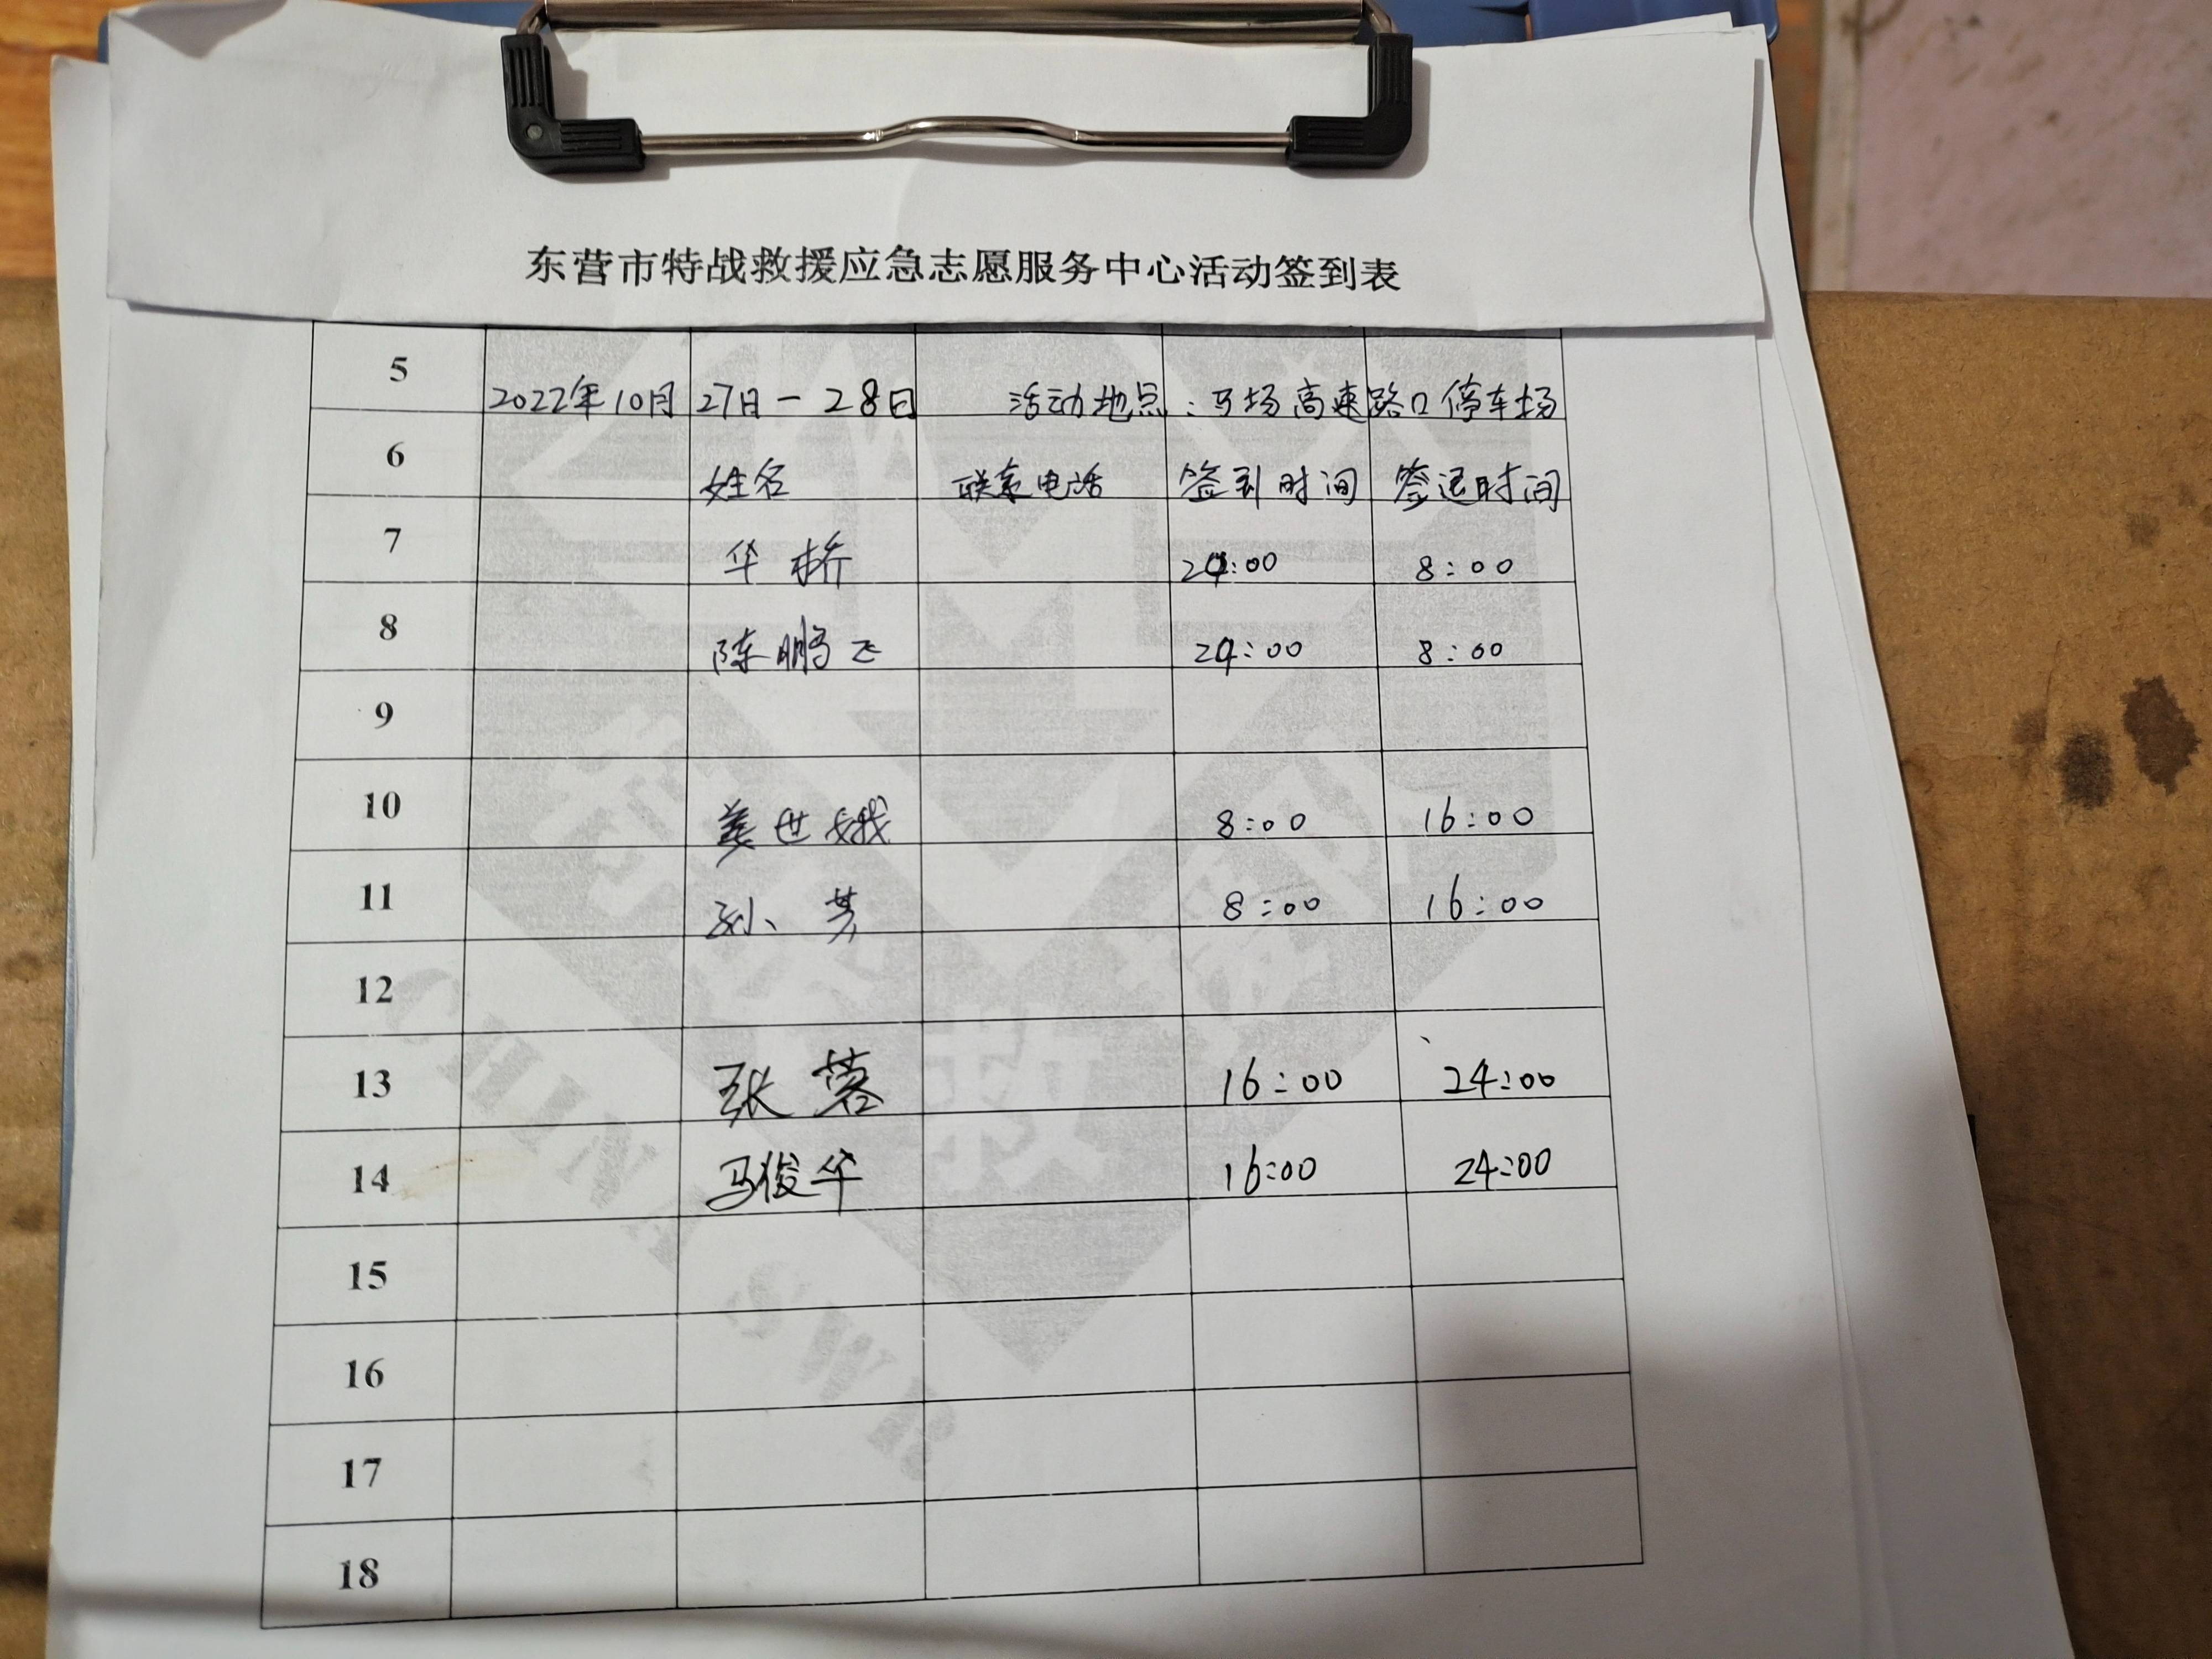 东营市特战救援应急志愿服务中心活动签到表
5 2022年10月27日-28日 活动地点:马场高速路口停车场
6 姓名 联系电话 签到时间 签退时间
7 华桥 24:00 8:00
8 陈鹏飞 24:00 8:00
9
10 姜世娥 8:00 16:00
11 孙芳 8:00 16:00
12
13 张蓉 16:00 24:00
14 马俊华 16:00 24:00
15
16
17
18
CHINA SWR